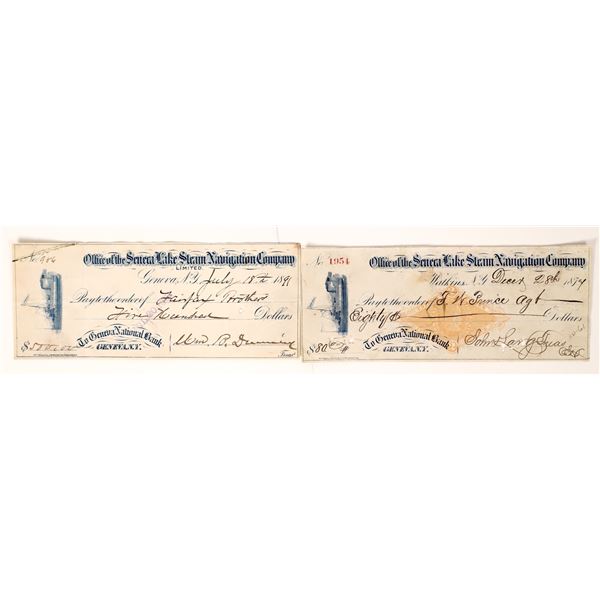 No. 986
Office of the Seneca Lake Steam Navigation Company
LIMITED.
Geneva, N.Y. July 18th 1891
Pay to the order of Fairfax Brothers
Five Hundred Dollars
$500
To Geneva National Bank
GENEVA, N.Y.
Wm. B. Dunning
Treas
No. 1954
Office of the Seneca Lake Steam Navigation Company
Watkins, N.Y. Decr 28th 1874
Pay to the order of S W Prince agt
Eighty Dollars
$80
To Geneva National Bank
GENEVA, N.Y.
John